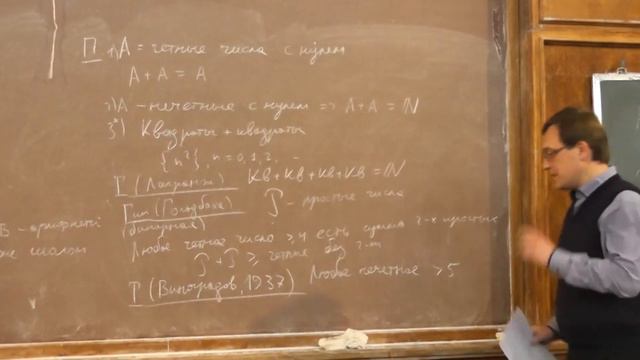 П 1) A = четные числа с нулем
A + A = A
2) A - нечетные с нулем => A + A = ℕ
3) Квадраты + квадраты
{n²}, n = 0, 1, 2, ...
Т (Лагранж) Кв + Кв + Кв + Кв = ℕ
Гип (Гольдбаха) 𝒫 - простые числа
(бинарная)
Любое четное число ≥ 4 есть сумма 2-х простых
𝒫 + 𝒫 ≥ четные без 2-х
Т (Виноградов, 1937) Любое нечетное > 5